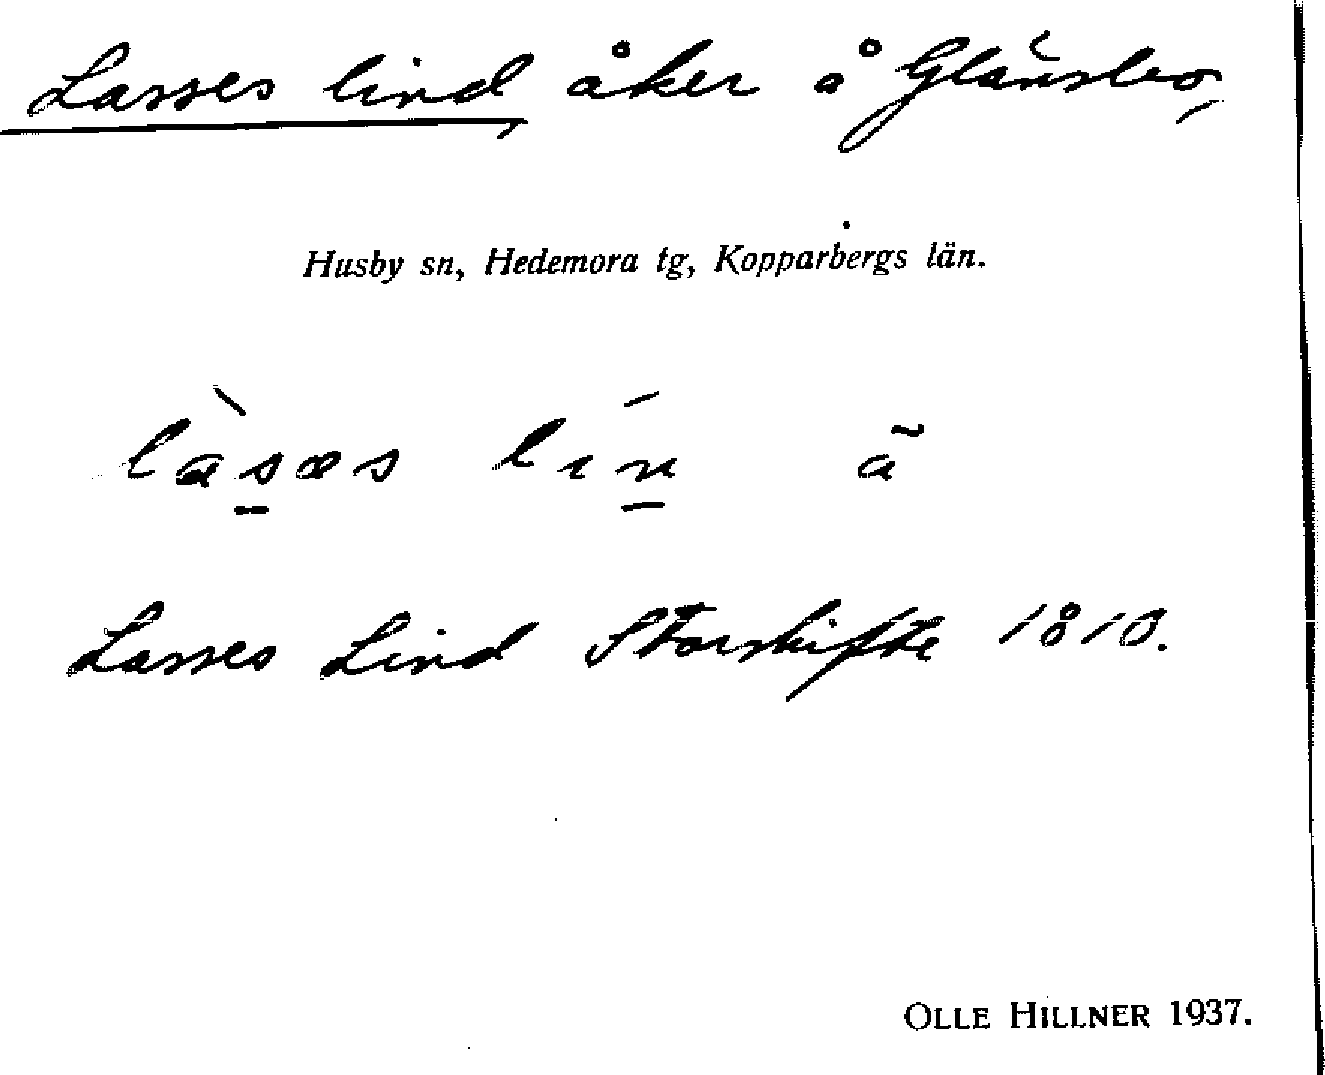 Lasses lind, åker å Glänsbo,
Husby sn, Hedemora tg, Kopparbergs län.
làs̠æs lín̠ ã
Lasses Lind Storskifte 1810.
OLLE HILLNER 1937.